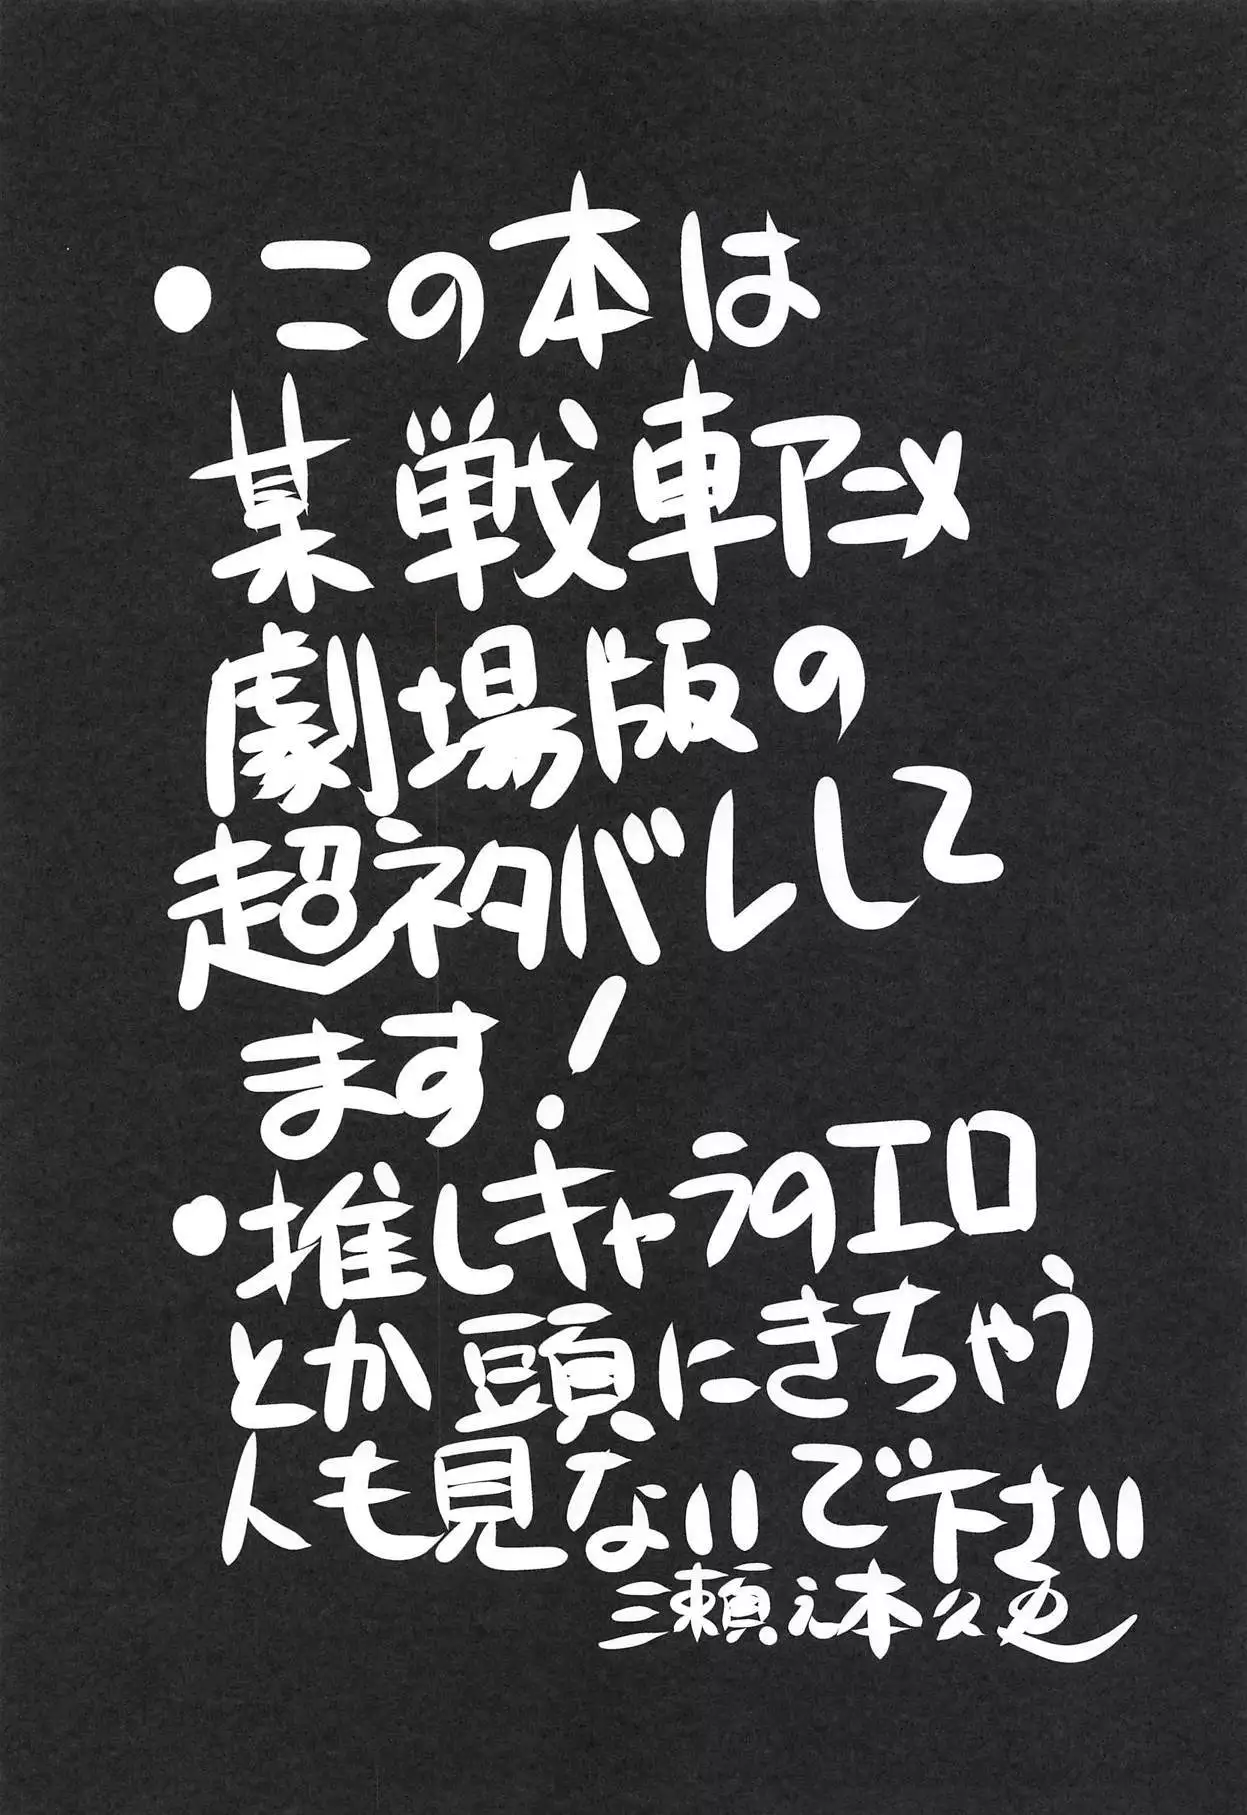 ・この本は
某戦車アニメ
劇場版の
超ネタバレして
ます!
・推しキャラのエロ
とか頭にきちゃう
人も見ないで下さい
三瀬之本久